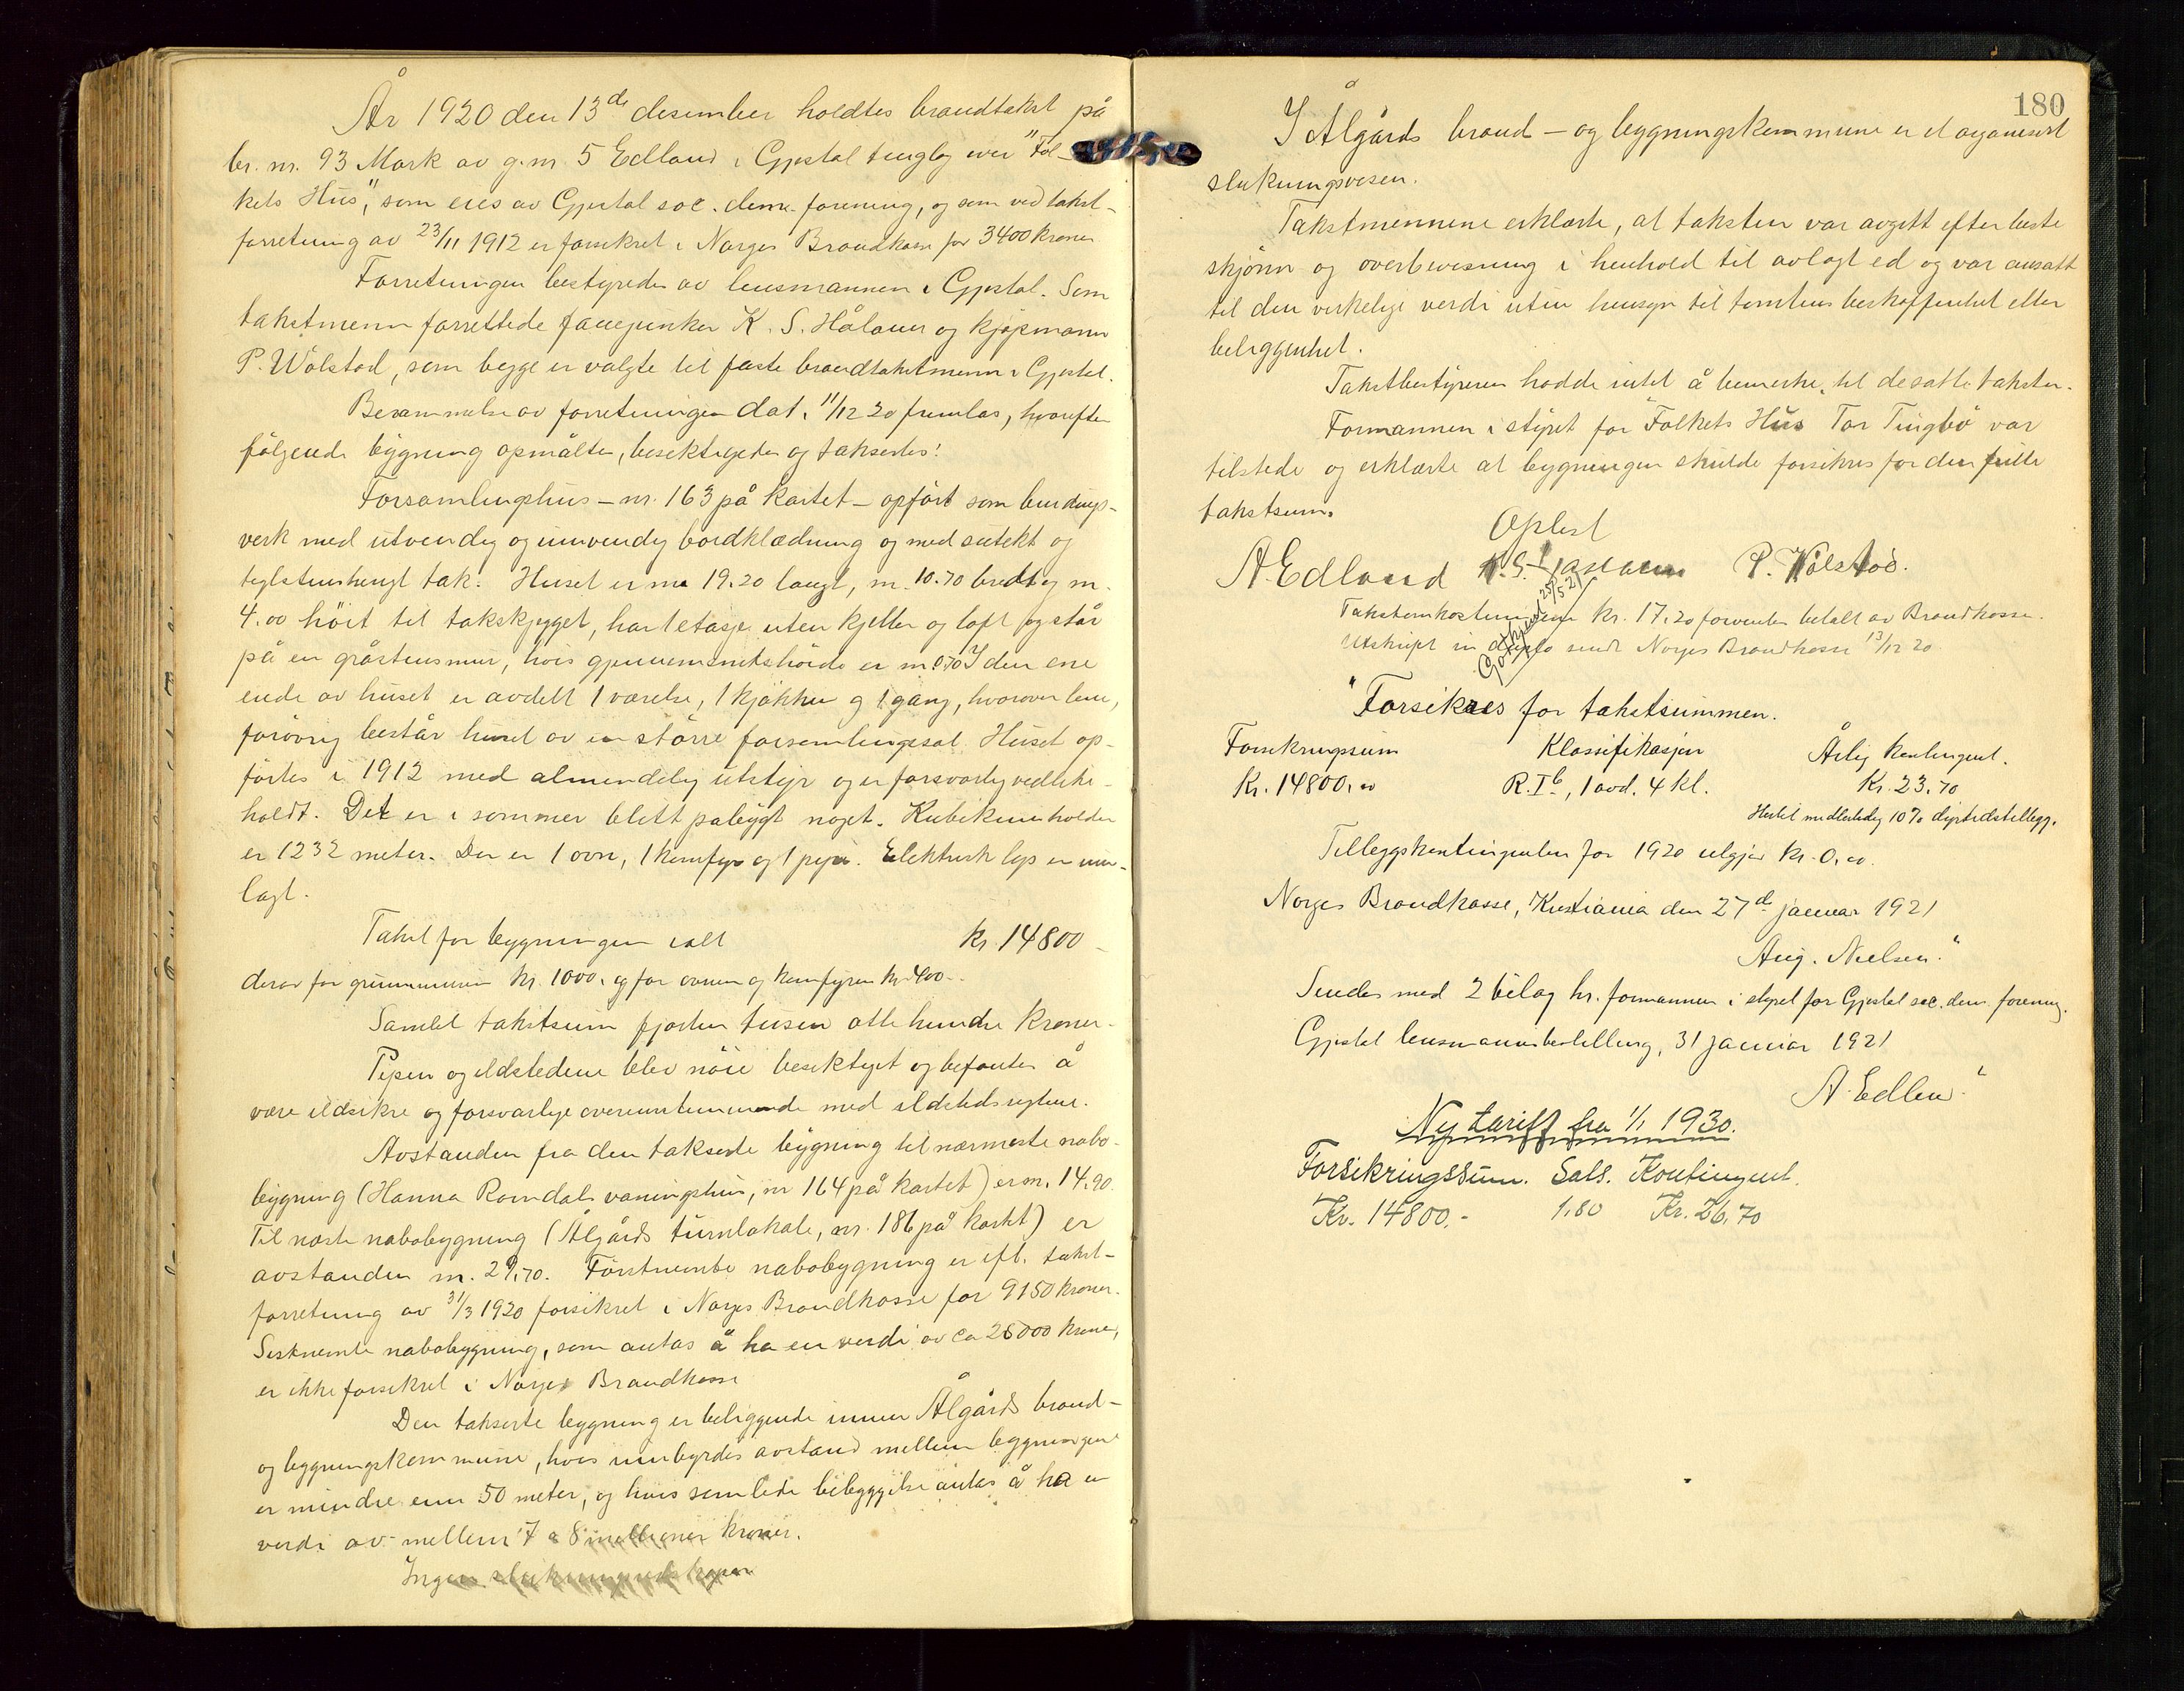 År 1920 den 13de desember holdtes brandtakst på
br. nr. 93 Mork av g. nr 5 Edland i Gjestal tinglag over "Fol-
kets Hus", som eies av Gjestal soc. dem. forening, og som ved takst-
forretning av 23/11 1912 er forsikret i Norges Brandkasse for 3400 kroner
Forretningen bestyredes av lensmannen i Gjestal. Som
takstmenn forrettede fanejunker K. S. Håland og kjøpmann
P. Wolstad, som begge er valgte til faste brandtakstmenn i Gjestal.
Berammelse av forretningen dat. 11/12 20 fremlas, hvorefter
følgende bygning opmåltes, besiktigedes og takseredes:
Forsamlingshus - nr. 163 på kartet - opført som bindings-
verk med utvendig og innvendig bordklædning og med sutekt og
teglstenshengt tak. Huset er m. 19.20 langt, m. 10.70 bredt og m.
4.00 høit til takskjegget, har 1 etasje uten kjeller og loft og står
på en gråstensmur, hvis gjennemsnitshøide er m 0.70 I den ene
ende av huset er avdelt 1 værelse, 1 kjøkken og 1 gang, hvorover lem,
forøvrig består huset av en større forsamlingssal. Huset op-
førtes i 1912 med almindelig utstyr og er forsvarlig vedlike-
holdt. Det er i sommer blett påbygt noget. Kubikinnholdet
er 1232 meter. Der er 1 ovn, 1 komfyr og 1 pipe. Elektrisk lys er inn-
lagt.
Takst for bygningen ialt kr. 14800 -
derav for grunnmuren kr. 1000. og for ovnen og komfyren kr. 400.-
Samlet takstsum fjorten tusen otte hundre kroner.
Pipen og ildstedene blev nøie besiktiget og befantes å
være ildsikre og forsvarlige overensstemmende med ildstedsreglene.
Avstanden fra den takserte bygning til nærmeste nabo-
bygning (Hanna Romdals våningshus, nr 164 på kartet) er m. 14.90.
Til næste nabobygning (Ålgårds turnlokale, nr. 186 på kartet) er
avstanden m. 29.70. Førstnevnte nabobygning er ifl. takst-
forretning av 31/3 1920 forsikret i Norges Brandkasse for 9150 kroner.
Sistnevnte nabobygning, som antas å ha en verdi av ca 25000 kroner,
er ikke forsikret i Norges Brandkasse
Den takserte bygning er beliggende innen Ålgårds brand-
og bygningskommune, hvis innbyrdes avstand mellem bygningene
er mindre enn 50 meter, og hvis samlede bebyggelse antas å ha en
verdi av mellem 7 a 8 millioner kroner.
Ingen slukningsredskaper
180
I Ålgårds brand- og bygningskommune er et organisert
slukningsvesen.
Takstmennene erklærte, at taksten var avgitt efter beste
skjønn og overbevisning i henhold til avlagt ed og var ansatt
til den virkelige verdi uten hensyn til tomtens beskaffenhet eller
beliggenhet.
Takstbestyreren hadde intet å bemerke til de satte takster.
Formannen i styret for "Folkets Hus" Tor Tingbø var
tilstede og erklærte at bygningen skulde forsikres for den fulle
takstsum.
Oplest
A. Edland K. S. Håland P. Wolstad.
Takstomkostningene kr. 17,20 forventes betalt av Brandkassen.
Utskrift in duplo sendt Norges Brandkasse 13/12 20
Godkjend 25/5-21
"Forsikres for takstsummen.
Forsikringssum Klassifikasjon Årlig kontingent.
Kr. 14800,00 R. Ib, 1 avd. 4 kl. Kr. 23,70
Hertil midlertidig 10% dyrtidstillegg.
Tilleggskontingenten for 1920 utgjør kr. 0,00.
Norges Brandkasse, Kristiania den 27de januar 1921
Aug. Nielsen."
Sendes med 2 bilag hr. formannen i styret for Gjestal soc. dem. forening.
Gjestal lensmannsbestilling, 31 januar 1921
A. Edland
Ny tariff fra 1/1 1930.
Forsikringssum. Sats. Kontingent.
Kr. 14800.- 1,80 Kr. 26,70